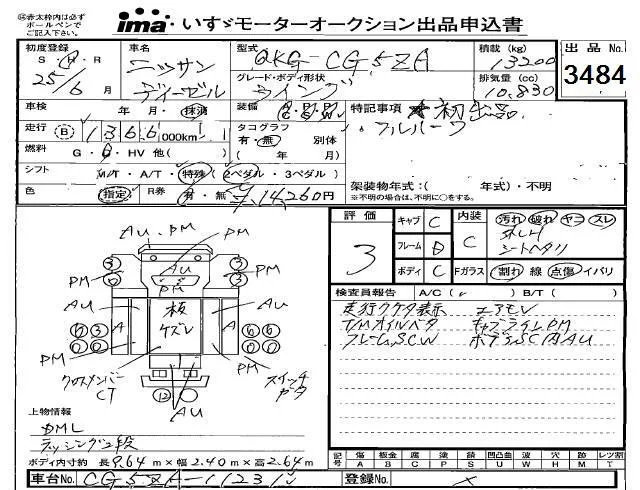 ※赤太枠内は必ず
ボールペンで
ご記入下さい。
ima・いすゞモーターオークション出品申込書
初度登録 車名 型式 積載 (kg) 出品No.
S・H・R ニッサン QKG-CG5ZA 13200 3484
25/6月 ディーゼル グレード・ボディ形状 ウイング 排気量 (cc) 10,830
車検 年 月・抹消 装備 特記事項 ★初出品
走行 B 1366,000km タコグラフ 有・無 別体 フルハーフ
燃料 G・D・HV 他( ) ( 年 月)
シフト M/T・A/T・特殊 (2ペダル・3ペダル) 架装物年式:( 年式)・不明
色 指定 R券 有・無 14,260円 ※不明の場合は、不明に○をする。
評価 3 キャブ C 内装 C 汚れ 破れ ヤニ スレ
フレーム D シートヘタリ
ボディ C Fガラス 割れ 線 点傷 イバリ
検査員報告 A/C( ) B/T( )
走行クケタ表示 エアモレ
T/Mオイルベタ キャブライムPM
フレームS,C,W ボデーSC内AU
AU.PM
PM AU PM PM
AU 板ケズレ AU
A A
PM PM
クロスメンバーCT スイッチ
12 AU
上物情報
DML
ラッシング2段
ボディ内寸約 長9.64m×幅2.40m×高2.64m
記号 傷 A 板金 B 腐 C 塗 P 錆 S 凹凸曲 U 波 W 穴 H 跡 M レツ割 T
車台No. CG5ZA-11231 登録No.